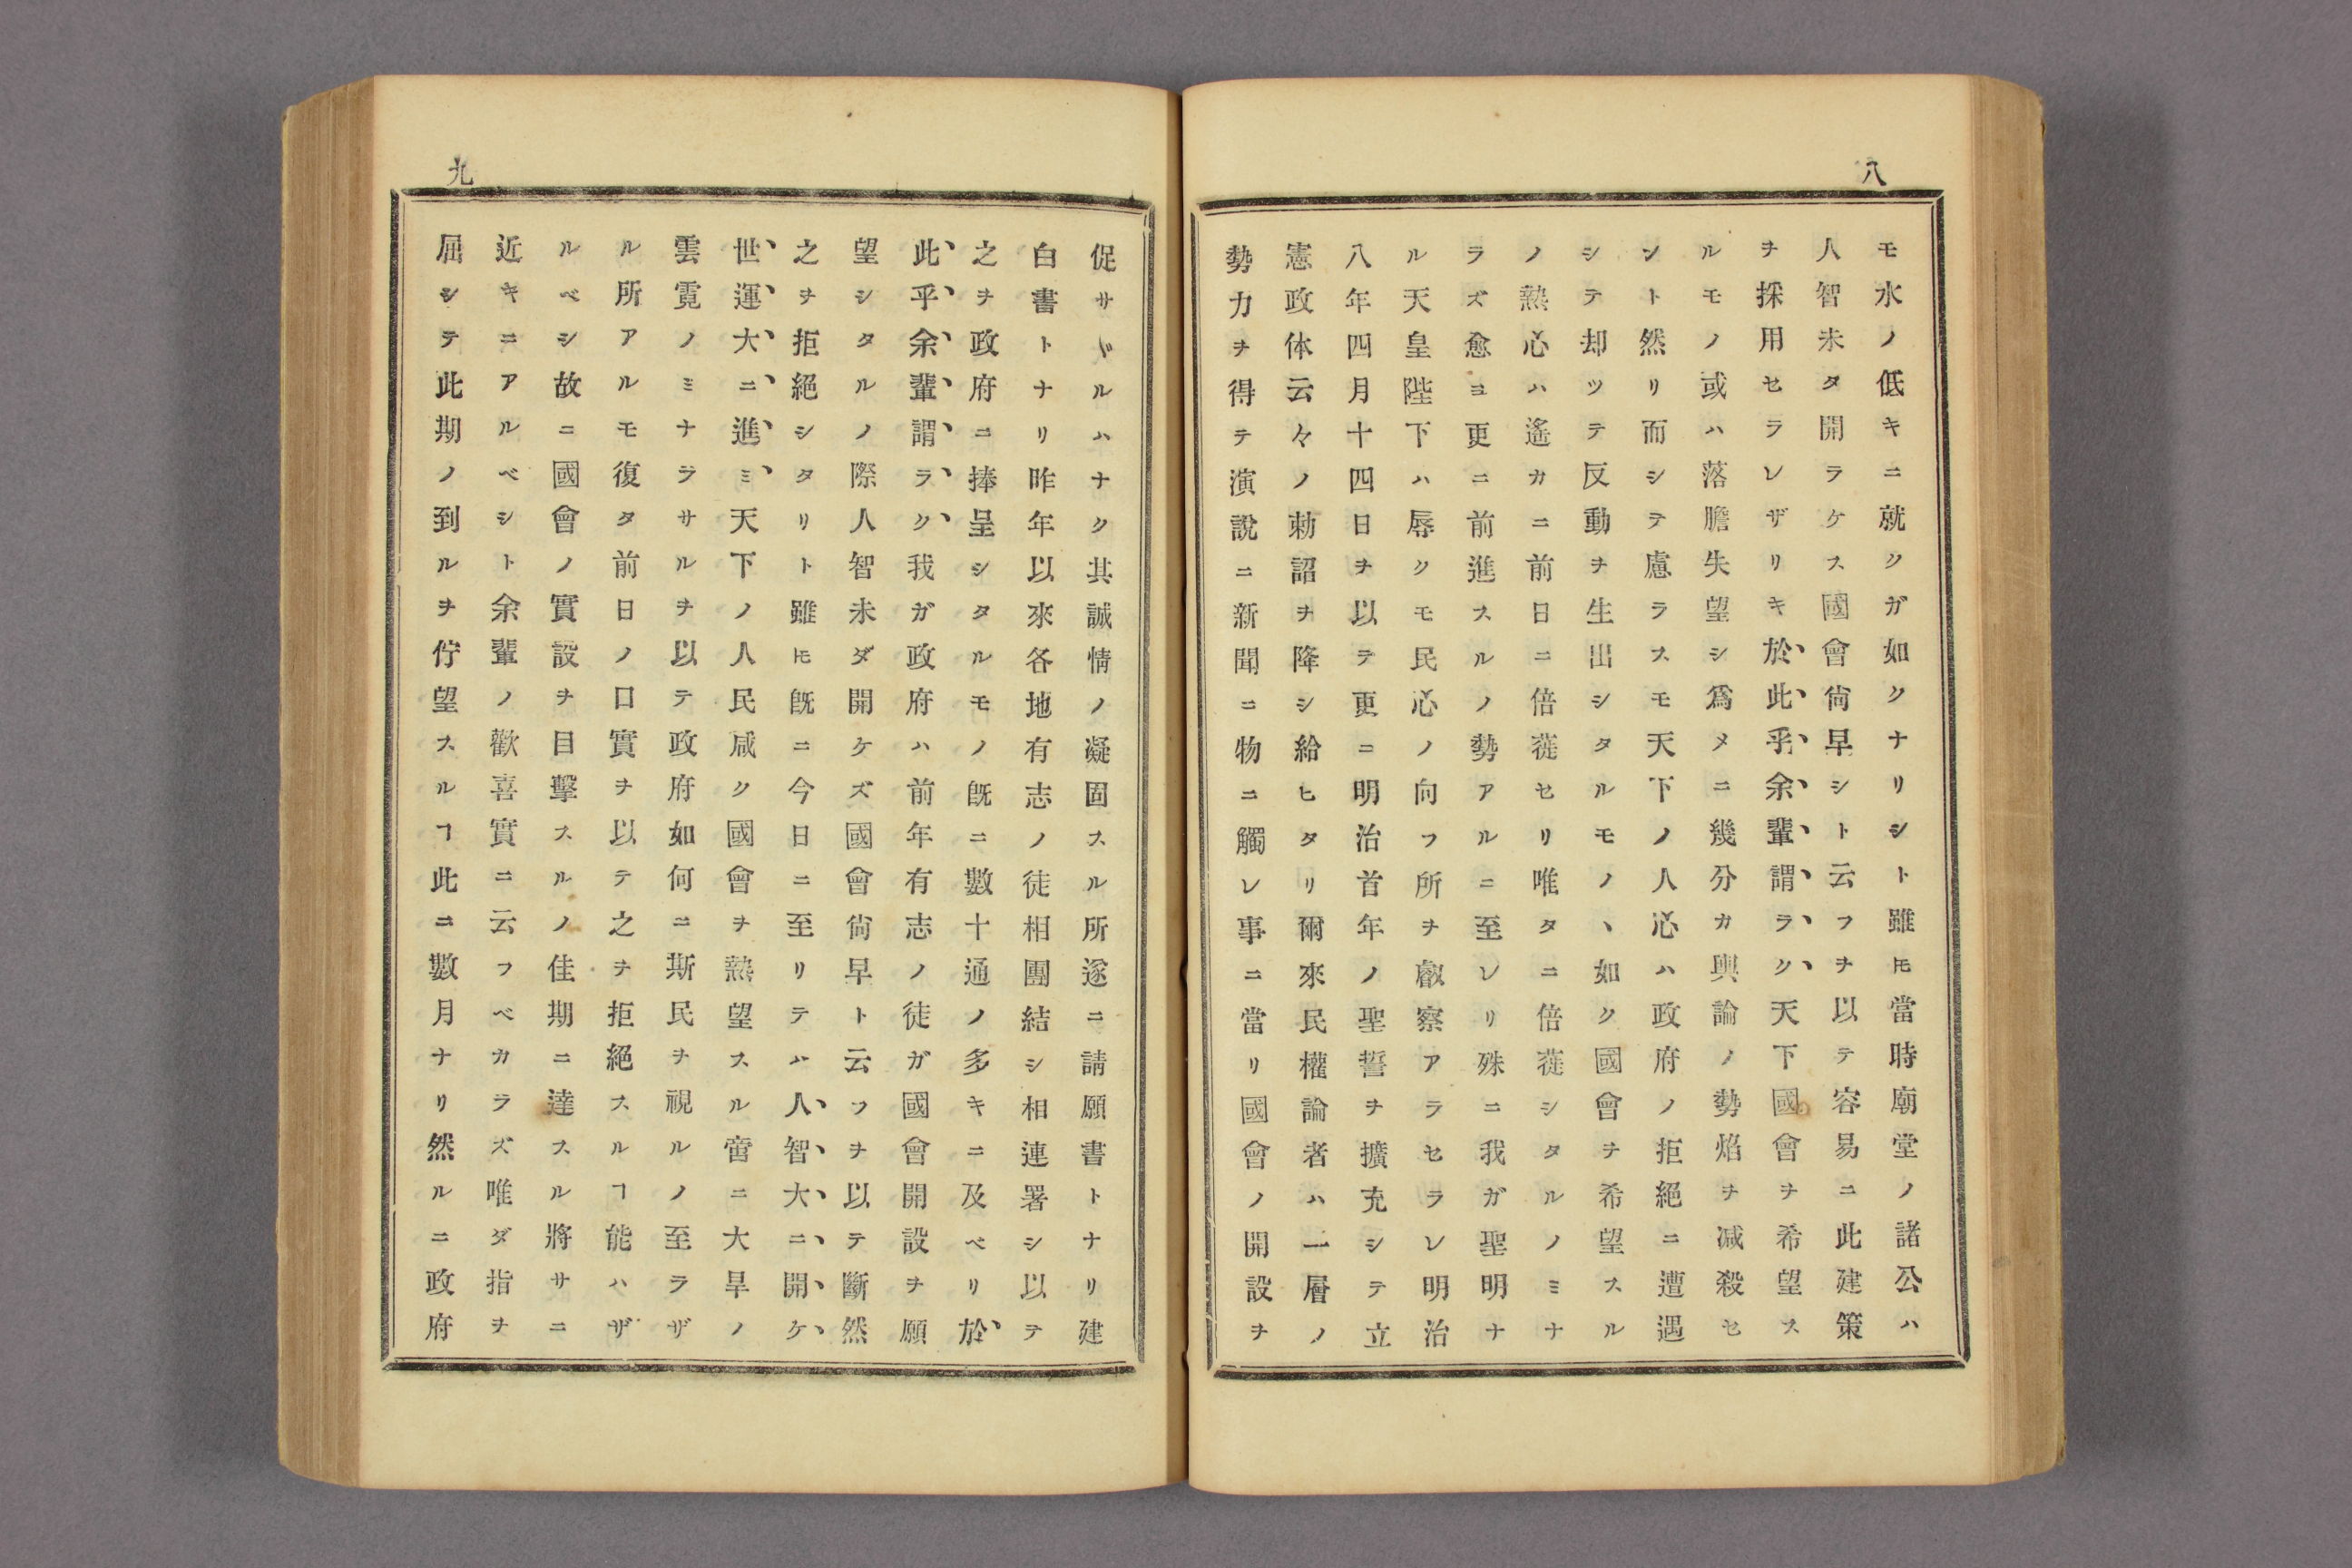 八
モ水ノ低キニ就クガ如クナリシト雖𪜈當時廟堂ノ諸公ハ
人智未タ開ラケス國會尙早シト云フヲ以テ容易ニ此建策
ヲ採用セラレザリキ於此乎余輩謂ラク天下國會ヲ希望ス
ルモノ或ハ落膽失望シ爲メニ幾分カ輿論ノ勢焰ヲ减殺セ
ント然リ而シテ慮ラスモ天下ノ人心ハ政府ノ拒絕ニ遭遇
シテ却ツテ反動ヲ生出シタルモノヽ如ク國會ヲ希望スル
ノ熱心ハ遙カニ前日ニ倍蓰セリ唯タニ倍蓰シタルノミナ
ラズ愈ヨ更ニ前進スルノ勢アルニ至レリ殊ニ我ガ聖明ナ
ル天皇陛下ハ辱クモ民心ノ向フ所ヲ叡察アラセラレ明治
八年四月十四日ヲ以テ更ニ明治首年ノ聖誓ヲ擴充シテ立
憲政体云々ノ勅詔ヲ降シ給ヒタリ爾來民權論者ハ一層ノ
勢力ヲ得テ演說ニ新聞ニ物ニ觸レ事ニ當リ國會ノ開設ヲ
九
促サヾルハナク其誠情ノ凝固スル所遂ニ請願書トナリ建
白書トナリ昨年以來各地有志ノ徒相團結シ相連署シ以テ
之ヲ政府ニ捧呈シタルモノ旣ニ數十通ノ多キニ及ベリ於
此乎余輩謂ラク我ガ政府ハ前年有志ノ徒ガ國會開設ヲ願
望シタルノ際人智未ダ開ケズ國會尙早ト云フヲ以テ斷然
之ヲ拒絕シタリト雖𪜈旣ニ今日ニ至リテハ人智大ニ開ケ
世運大ニ進ミ天下ノ人民咸ク國會ヲ熱望スル啻ニ大旱ノ
雲霓ノミナラサルヲ以テ政府如何ニ斯民ヲ視ルノ至ラザ
ル所アルモ復タ前日ノ口實ヲ以テ之ヲ拒絕スルヿ能ハザ
ルベシ故ニ國會ノ實設ヲ目擊スルノ佳期ニ達スル將サニ
近キニアルベシト余輩ノ歡喜實ニ云フベカラズ唯ダ指ヲ
屈シテ此期ノ到ルヲ佇望スルヿ此ニ數月ナリ然ルニ政府